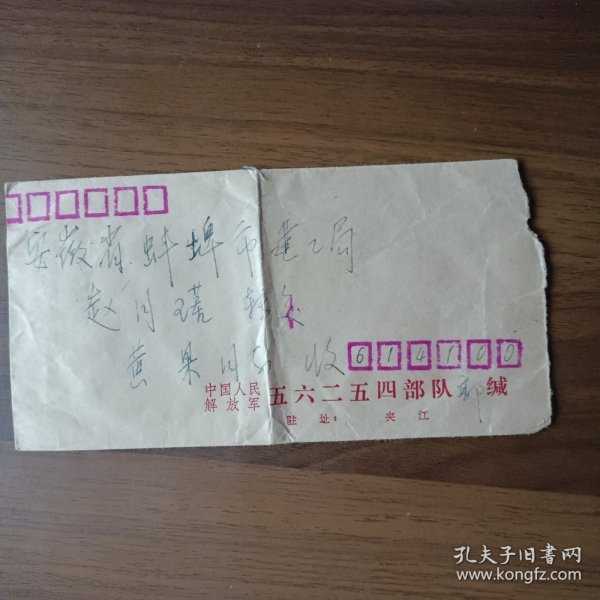 安徽省蚌埠市建工局
赵月瑾转交
黄果同志 收
614100
中国人民解放军 五六二五四部队 缄
驻址：夹江
孔夫子旧书网
www.kongfz.com